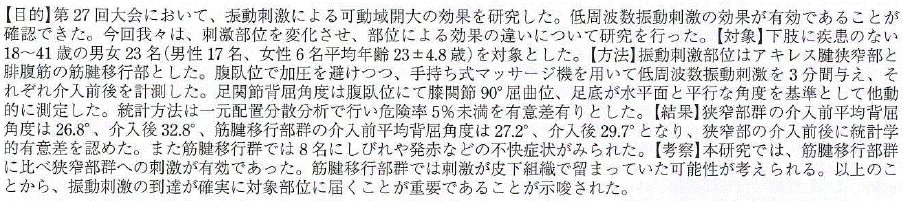 【目的】第27回大会において、振動刺激による可動域開大の効果を研究した。低周波数振動刺激の効果が有効であることが
確認できた。今回我々は、刺激部位を変化させ、部位による効果の違いについて研究を行った。【対象】下肢に疾患のない
18～41歳の男女23名(男性17名、女性6名平均年齢23±4.8歳)を対象とした。【方法】振動刺激部位はアキレス腱狭窄部と
腓腹筋の筋腱移行部とした。腹臥位で加圧を避けつつ、手持ち式マッサージ機を用いて低周波数振動刺激を3分間与え、そ
れぞれ介入前後を計測した。足関節背屈角度は腹臥位にて膝関節90°屈曲位、足底が水平面と平行な角度を基準として他動
的に測定した。統計方法は一元配置分散分析で行い危険率5%未満を有意差有りとした。【結果】狭窄部群の介入前平均背屈
角度は26.8°、介入後32.8°、筋腱移行部群の介入前平均背屈角度は27.2°、介入後29.7°となり、狭窄部の介入前後に統計学
的有意差を認めた。また筋腱移行群では8名にしびれや発赤などの不快症状がみられた。【考察】本研究では、筋腱移行部群
に比べ狭窄部群への刺激が有効であった。筋腱移行部群では刺激が皮下組織で留まっていた可能性が考えられる。以上のこ
とから、振動刺激の到達が確実に対象部位に届くことが重要であることが示唆された。